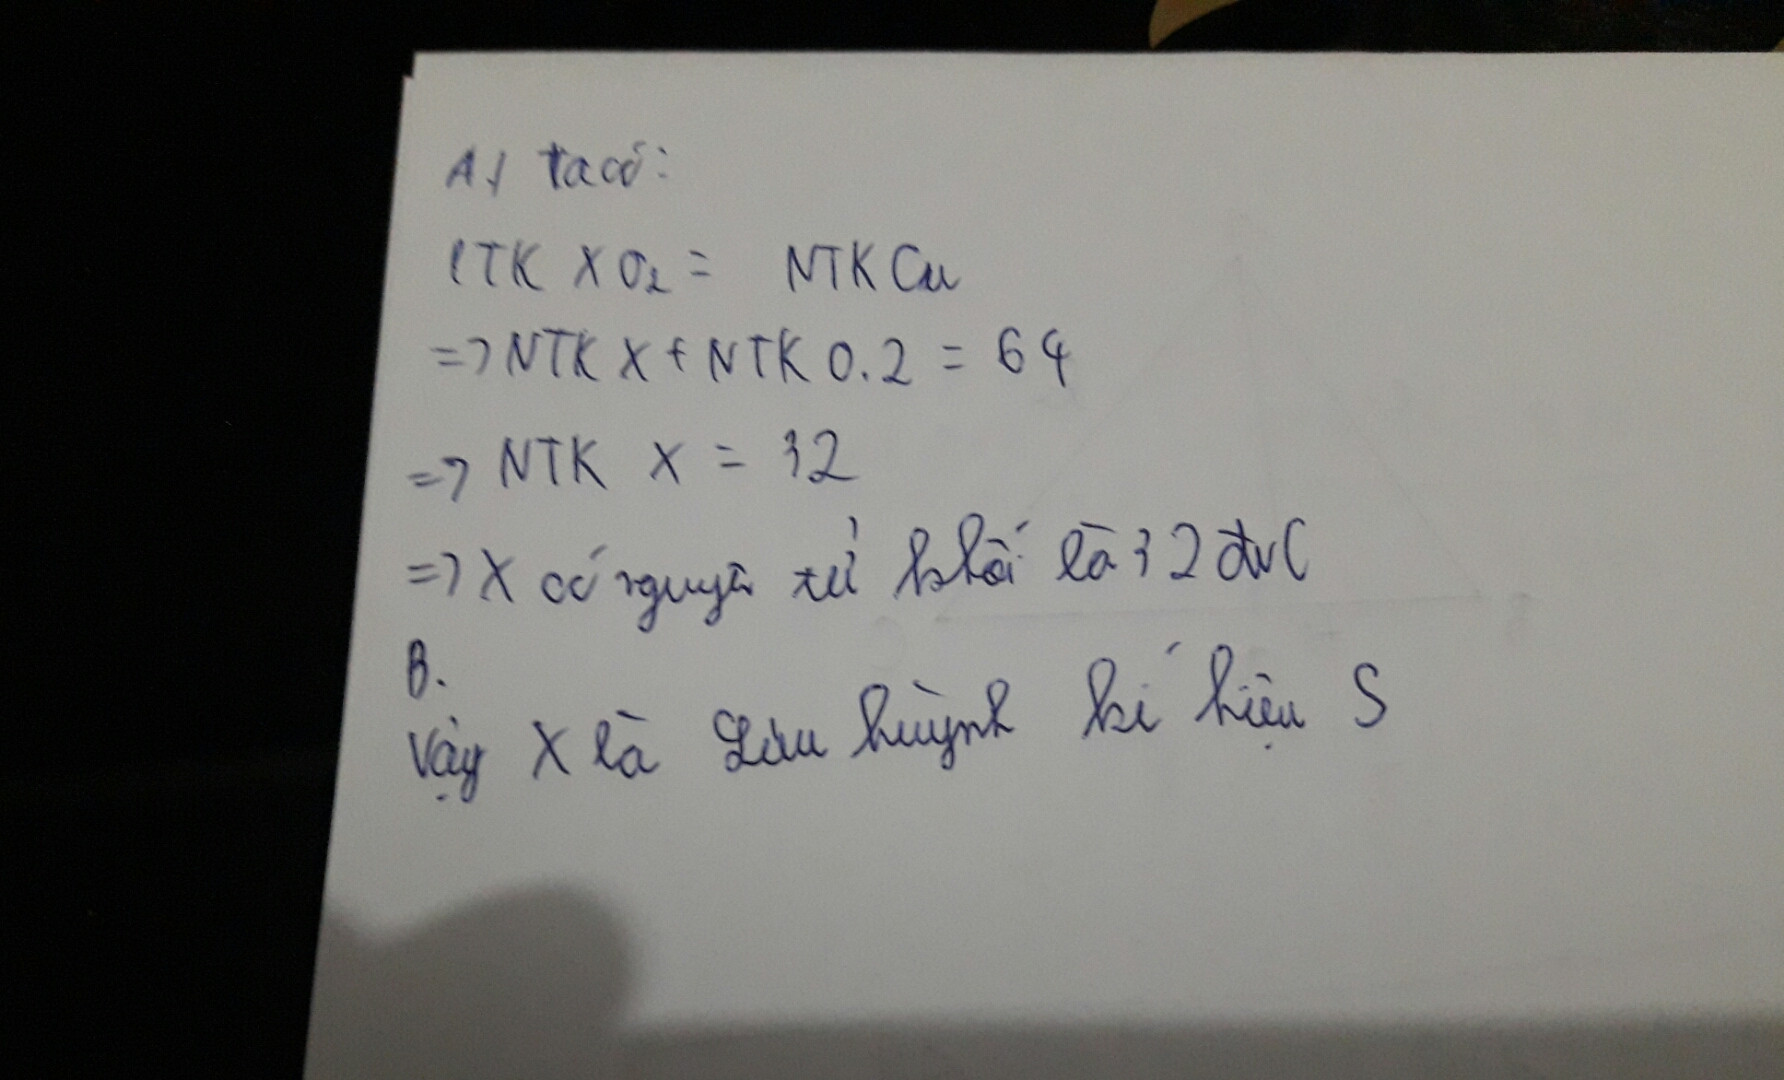 A/ ta có:
PTK XO2 = NTK Cu
=> NTK X + NTK O.2 = 64
=> NTK X = 32
=> X có nguyên tử khối là 32 đvC
B.
Vậy X là Lưu huỳnh kí hiệu S